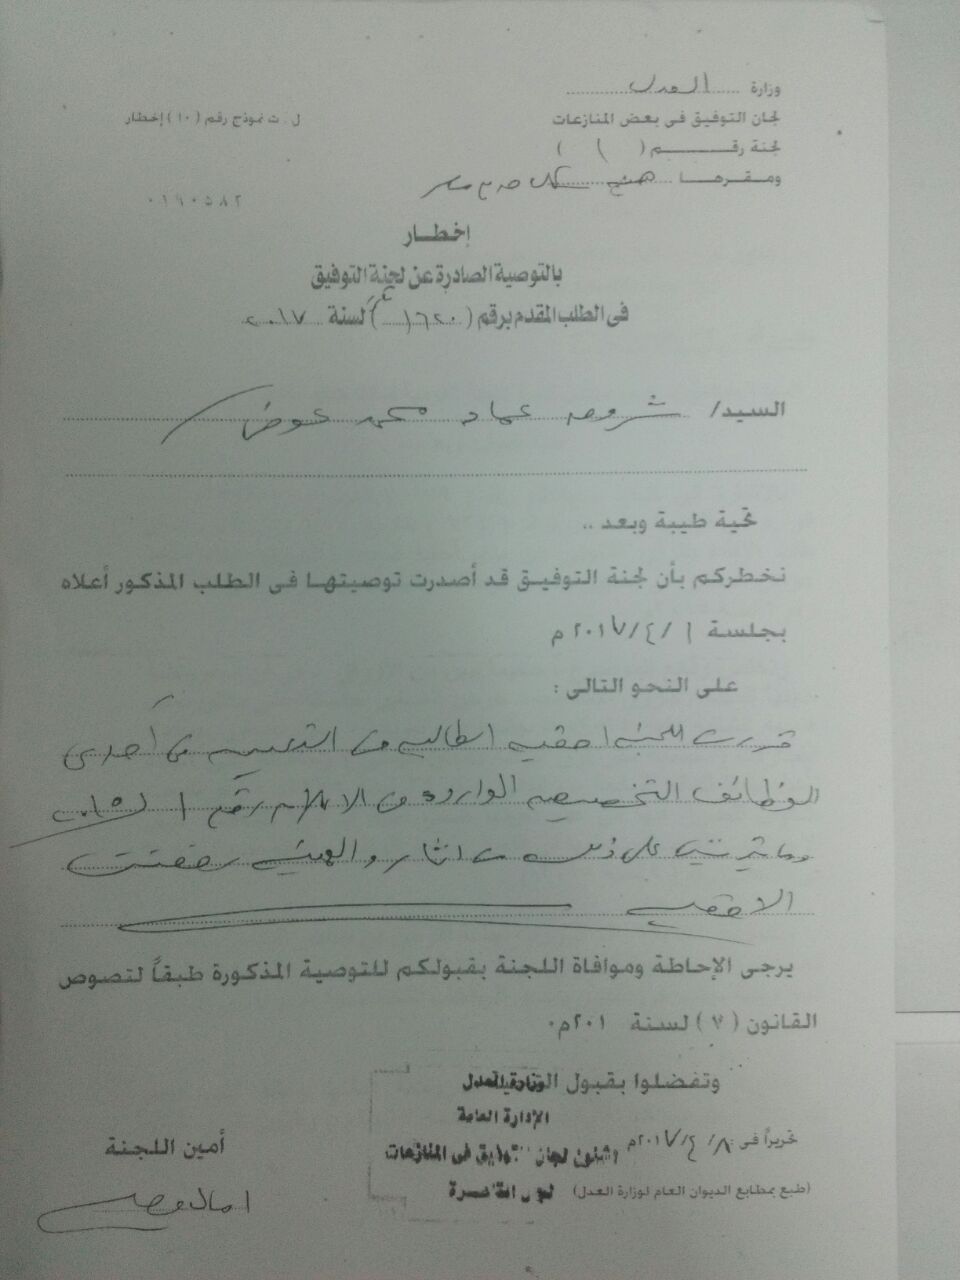 وزارة العدل
لجان التوفيق فى بعض المنازعات
ل . ت نموذج رقم (١٠) إخطار
لجنة رقـــم ( ١ )
ومقرها
٠١٩٠٥٨٢
إخطار
بالتوصية الصادرة عن لجنة التوفيق
فى الطلب المقدم برقم (١٦٢٠) لسنة ٢٠١٧
السيد/ شروق عماد محمد عوض
تحية طيبة وبعد ..
نخطركم بأن لجنة التوفيق قد أصدرت توصيتها فى الطلب المذكور أعلاه
بجلسة ١ / ٤ / ٢٠١٧م
على النحو التالى :
قررت اللجنة احقيه الطالبه فى التعيين فى أحدى
الوظائف التخصصيه الوارده فى الاعلان رقم ١ لسنة
وما يترتب على ذلك من اثار والهيئه رفضت
يرجى الإحاطة وموافاة اللجنة بقبولكم للتوصية المذكورة طبقاً لنصوص
القانون (٧) لسنة ٢٠١م٠
وتفضلوا بقبول
وزارة العدل
الإدارة العامة
لشئون لجان التوفيق فى المنازعات
تحريراً فى : ٨ / ٤ / ٢٠١٧م
أمين اللجنة
(طبع بمطابع الديوان العام لوزارة العدل)